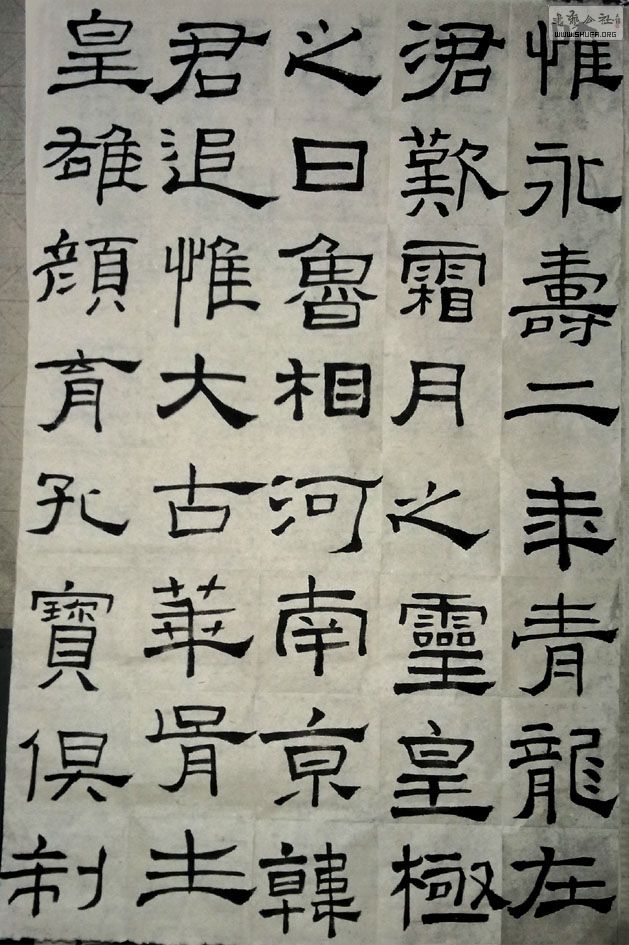 惟永壽二年青龍在
涒歎霜月之靈皇極
之日魯相河南京韓
君追惟大古華胥生
皇雄顏育孔寶俱制
WWW.SHUFA.ORG